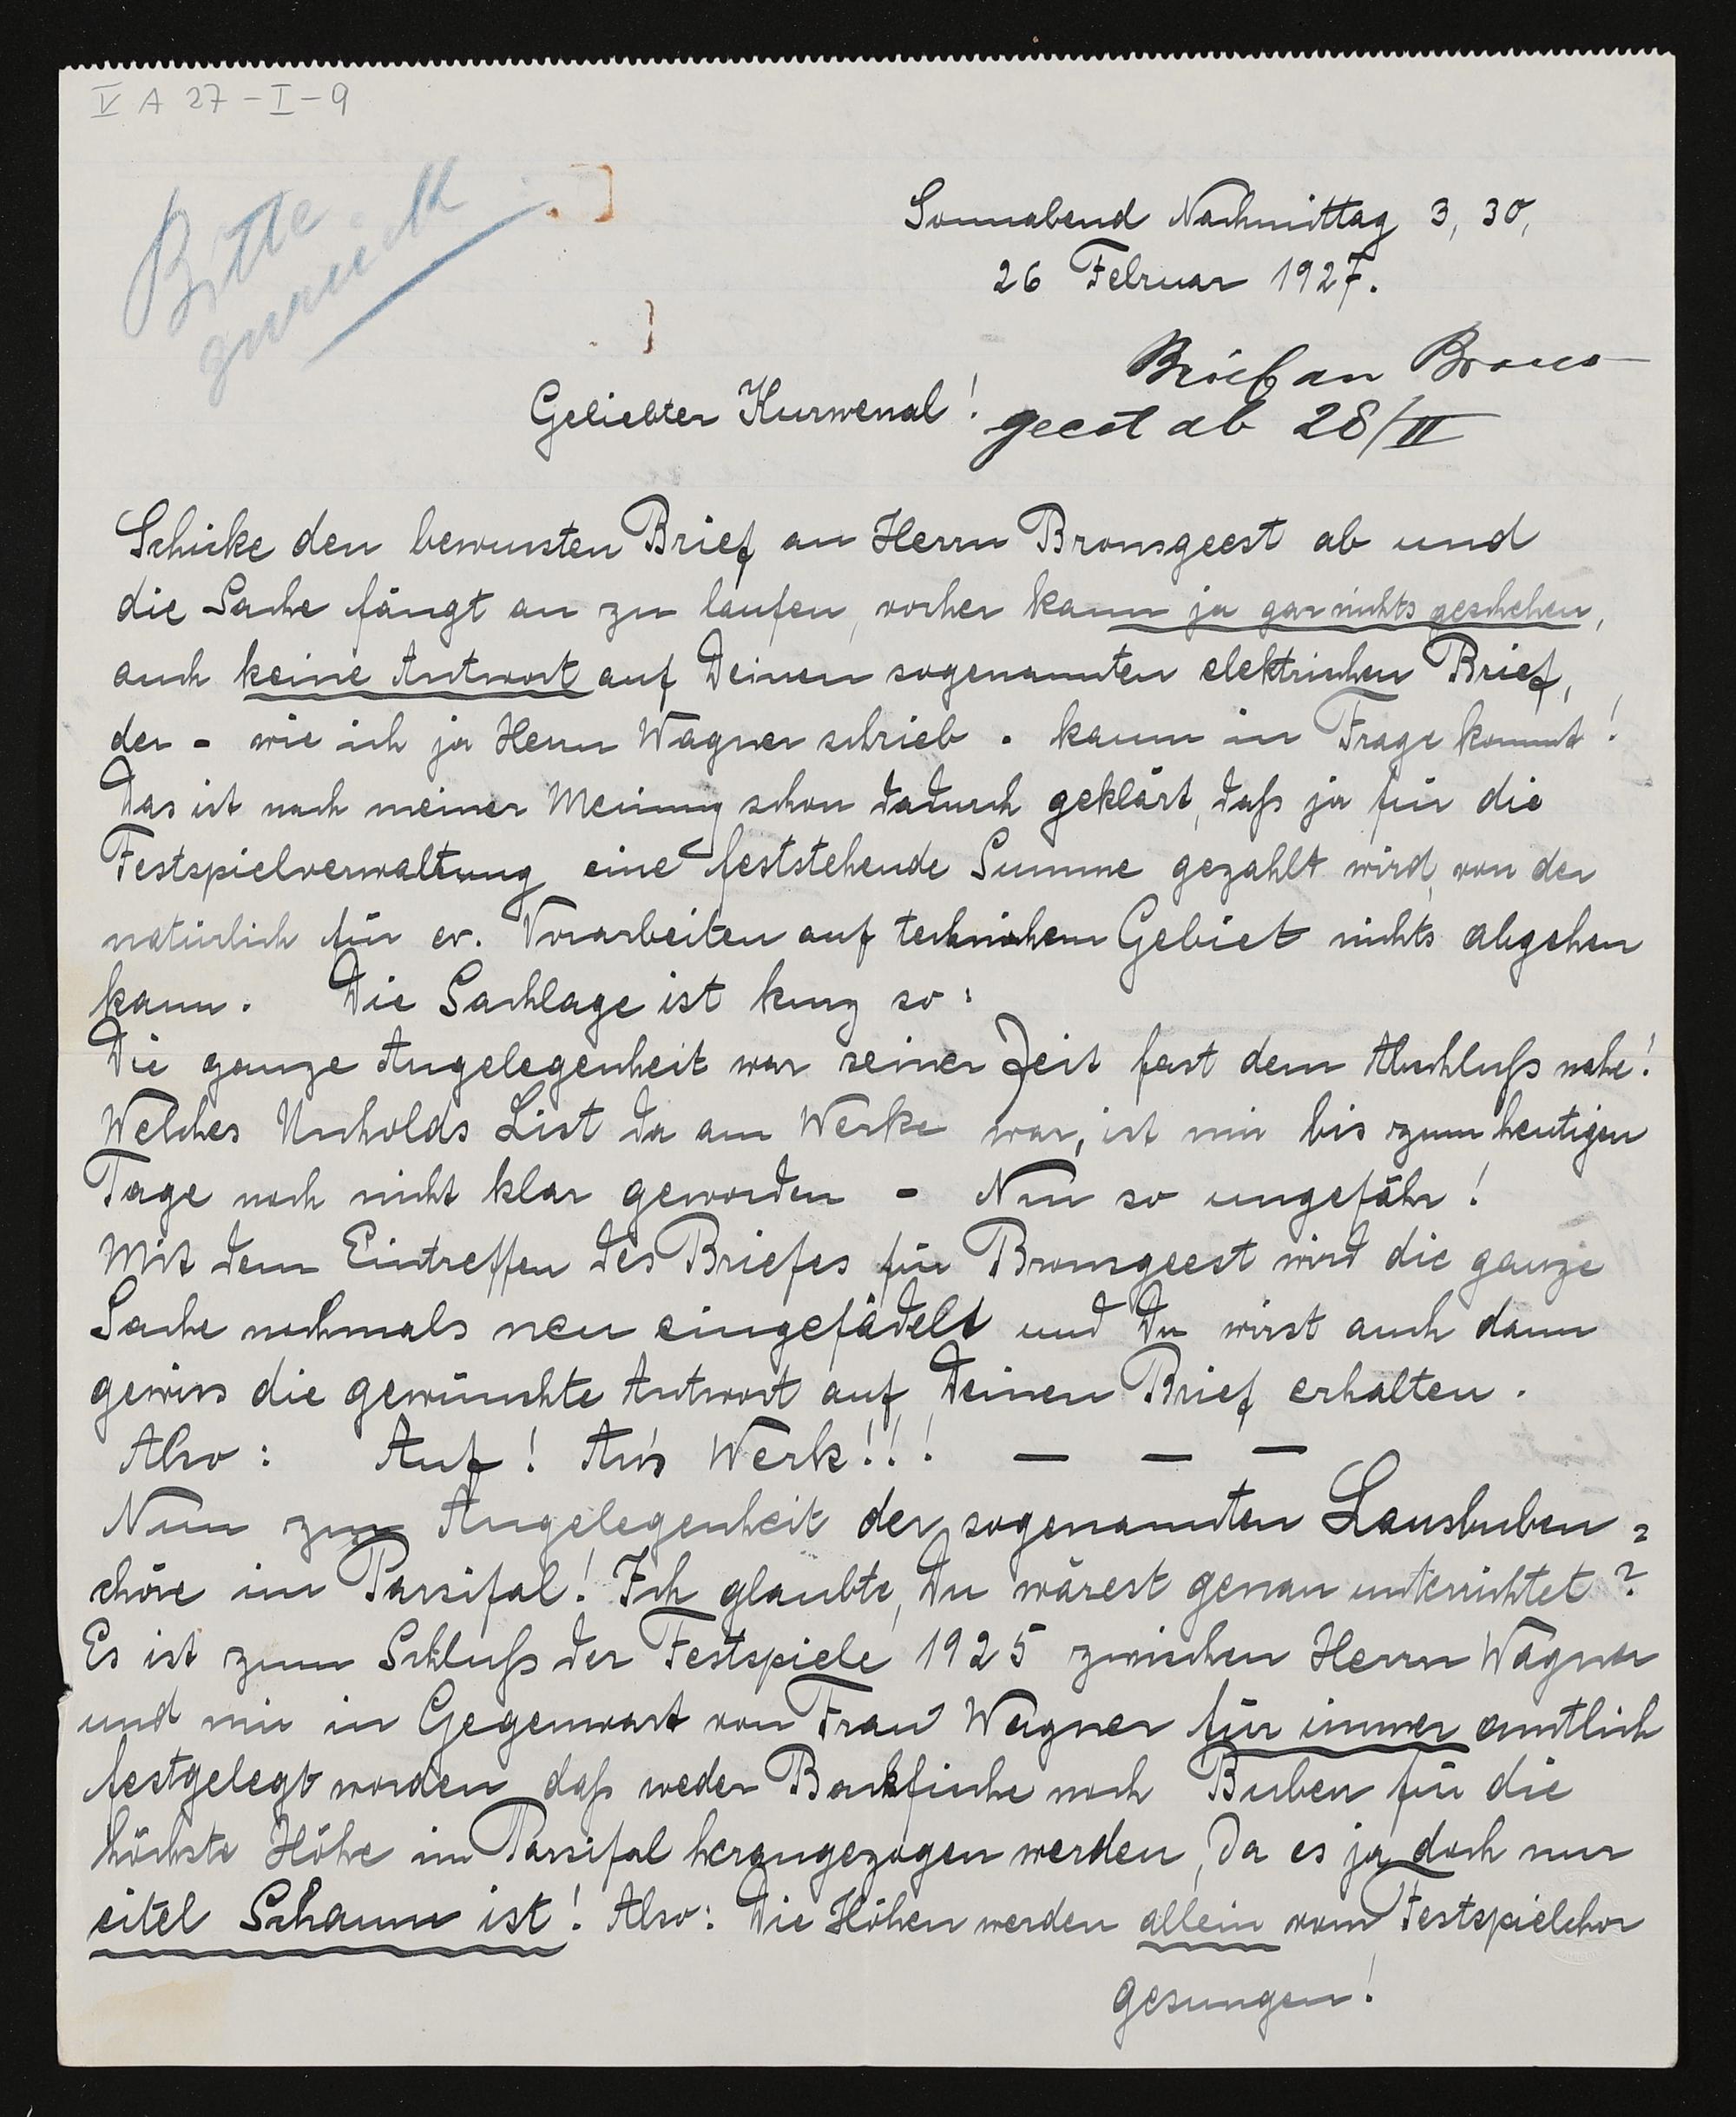 V A 27 - I - 9
Bitte
zurück
Sonnabend Nachmittag 3, 30,
26 Februar 1927.
Brief an Brons-
geest ab 28/II
Geliebter Kurwenal!
Schicke den bewussten Brief an Herrn Bronsgeest ab und
die Sache fängt an zu laufen, vorher kann ja gar nichts geschehen,
auch keine Antwort auf Deinen sogenannten elektrischen Brief,
der - wie ich ja Herrn Wagner schrieb - kaum in Frage kommt!
Das ist nach meiner Meinung schon dadurch geklärt, daß ja für die
Festspielverwaltung eine feststehende Summe gezahlt wird, von der
natürlich für ev. Vorarbeiten auf technischem Gebiet nichts abgehen
kann. Die Sachlage ist kurz so:
Die ganze Angelegenheit war seiner Zeit fast dem Abschluß nahe!
Welches Unholds List da am Werke war, ist mir bis zum heutigen
Tage noch nicht klar geworden - Nun so ungefähr!
Mit dem Eintreffen des Briefes für Bronsgeest wird die ganze
Sache nochmals neu eingefädelt und Du wirst auch dann
gewiss die gewünschte Antwort auf Deinen Brief erhalten.
Also: Auf! An's Werk!!! — — —
Nun zur Angelegenheit der sogenannten Lausbuben=
chöre im Parsifal! Ich glaubte, Du wärest genau unterrichtet?
Es ist zum Schluß der Festspiele 1925 zwischen Herrn Wagner
und mir in Gegenwart von Frau Wagner für immer amtlich
festgelegt worden, daß weder Backfische noch Buben für die
höchste Höhe im Parsifal herangezogen werden, da es ja doch nur
eitel Schaum ist! Also: Die Höhen werden allein vom Festspielchor
gesungen!